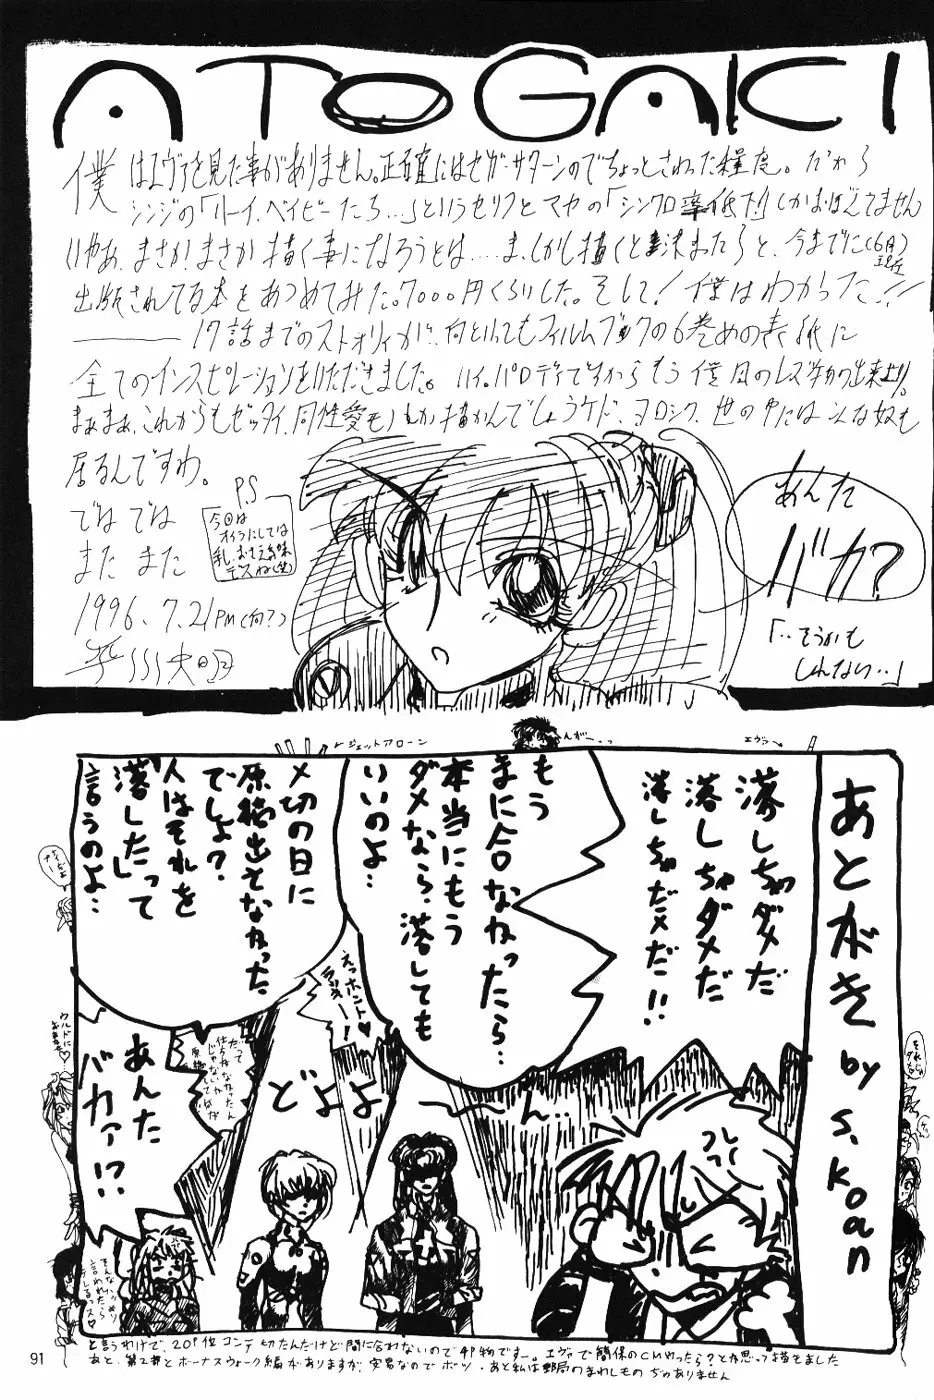 ATOGAKI
僕はエヴァを見た事がありません。正確にはセガ・サターンのでちょっとさわった程度。だから
シンジの「ハーイ、ベイビーたち…」というセリフとマヤの「シンクロ率低下!」しかおぼえてません
いやあ、まさか!まさか描く事になろうとは……ま、しかし描くと決まったらと、今までに(6月)現在
出版されてる本をあつめてみた。7000円くらいした。そして!僕はわかった!!
17話までのストォリィがに、何といってもフィルムブックの6巻めの表紙に
全てのインスピレーションをいただきました。ハイ。パロディですからもう僕風のレズ物の出来上り。
まぁまぁ、これからもゼッタイ、同性愛モノしか描かんでしょうケド、ヨロシク、世の中にはこんな奴も
居るんですわ。
ではでは
また また
1996.7.21PM(何?)
P.S
今回は
オイラにしては
乳、おさえ気味
デスね(笑)
あんた
バカ?
「‥そうかも
しれない‥」
ジェットアローン
エヴァ
あとがき by S.Koan
落しちゃダメだ
落しちゃダメだ
落しちゃだメだ!!
もう
まに合わなかったら…
本当にもう
ダメなら、落しても
いいのよ…
〆切の日に
原稿出せなかった
でしょ?
人はそれを
「落した」って
言うのよ…
えっホント♥
ラッキー!
どよよ〜ん‥
だって
仕方なかったん
じゃないか
あんた
バカァ!?
と言うわけで、20P位コンテ切たんだけど間に合わないので4P物です—。エヴァで簡保のCMやったら?とか思って描きました
あと、第2部とボーナスウォーク編がありますが、安易なのでボツ・あと私は郵局のまわしもの ぢゃありません
91